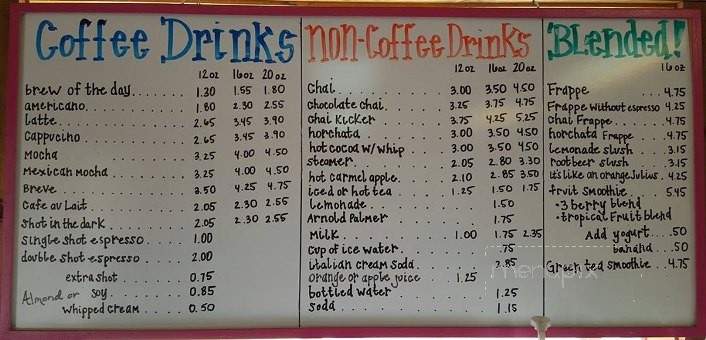 Coffee Drinks
12oz 16oz 20oz
brew of the day...... 1.30 1.55 1.80
americano. . . . . . . . . 1.80 2.30 2.55
Latte. . . . . . . . . . . . 2.65 3.45 3.90
Cappucino . . . . . . . . 2.65 3.45 3.90
Mocha . . . . . . . . . . 3.25 4.00 4.50
Mexican Mocha . . . . . . 3.25 4.00 4.50
Breve. . . . . . . . . . . 3.50 4.25 4.75
Cafe au Lait . . . . . . . 2.05 2.30 2.55
Shot in the dark . . . . . 2.05 2.30 2.55
single shot espresso . . . . 1.00
double shot espresso . . . . 2.00
extra shot 0.75
Almond or soy. . . . . . . 0.85
whipped cream . . . 0.50
Non-Coffee Drinks
12oz 16oz 20oz
Chai. . . . . . . . . . . 3.00 3.50 4.50
Chocolate Chai. . . . . . 3.25 3.75 4.75
Chai Kicker . . . . . . . 3.75 4.25 5.25
horchata . . . . . . . . 3.00 3.50 4.50
hot cocoa w/whip . . . . 3.00 3.50 4.50
steamer. . . . . . . . . 2.05 2.80 3.30
hot carmel apple. . . . . 2.10 2.85 3.50
iced or hot tea . . . . . 1.25 1.50 1.75
Lemonade. . . . . . . . . 1.50
Arnold Palmer . . . . . . 1.75
Milk . . . . . . . . . . 1.00 1.75 2.35
Cup of ice water. . . . . .75
italian cream soda. . . . 2.85
orange or apple juice 1.25
bottled water . . . . . . 1.25
Soda. . . . . . . . . . . 1.15
Blended!
16oz
Frappe . . . . . . . . 4.75
Frappe without espresso 4.25
Chai Frappe. . . . . . 4.75
horchata Frappe . . . . 4.75
Lemonade slush . . . . 3.15
rootbeer slush . . . . 3.15
it's like an orange Julius . 4.25
fruit smoothie. . . . . 5.45
•3 berry blend
•tropical Fruit blend
Add yogurt. . . .50
banana . . .50
Green tea smoothie . . 4.75
menupix